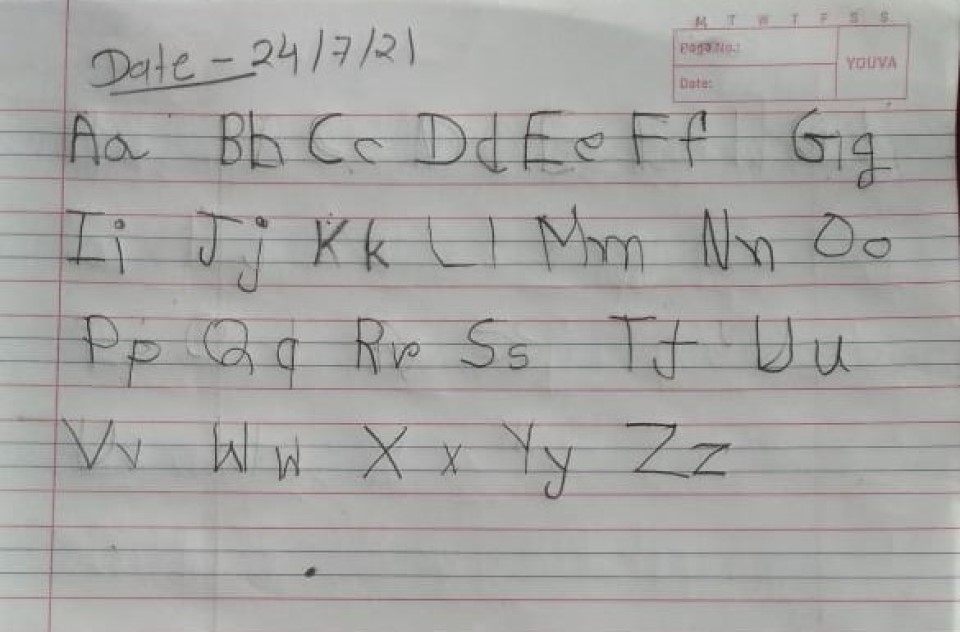 M T W T F S S
Page No.:
YOUVA
Date:
Date - 24/7/21
Aa Bb Cc Dd Ee Ff Gg
Ii Jj Kk Ll Mm Nn Oo
Pp Qq Rr Ss Tt Uu
Vv Ww Xx Yy Zz